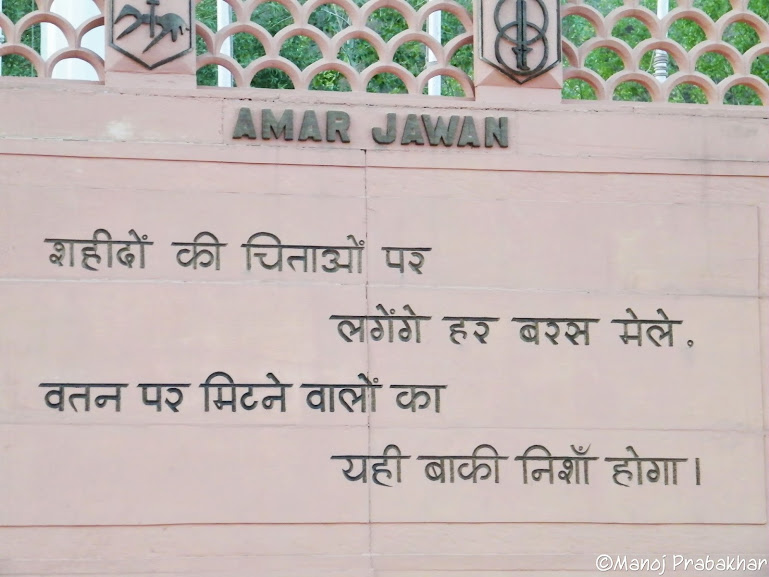 AMAR JAWAN
शहीदों की चिताओं पर
लगेंगे हर बरस मेले.
वतन पर मिटने वालों का
यही बाकी निशाँ होगा।
©Manoj Prabakhar